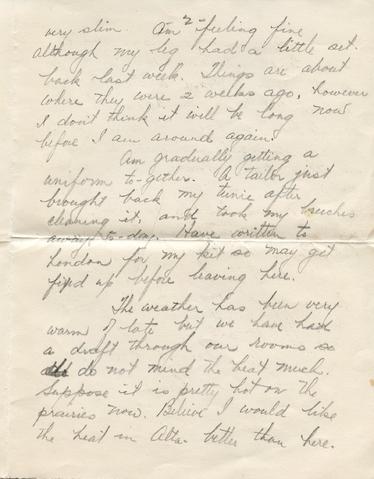 very slim. -2- Am feeling fine
although my leg had a little set
back last week. Things are about
where they were 2 weeks ago, however
I don't think it will be long now
before I am around again.
Am gradually getting a
uniform to-gether. A tailor just
brought back my tunic after
cleaning it, and took my breeches
away to-day. Have written to
London for my kit so may get
fixed up before leaving here.
The weather has been very
warm of late but we have had
a draft through our rooms so
do not mind the heat much.
Suppose it is pretty hot on the
prairies now. Believe I would like
the heat in Alta. better than here.